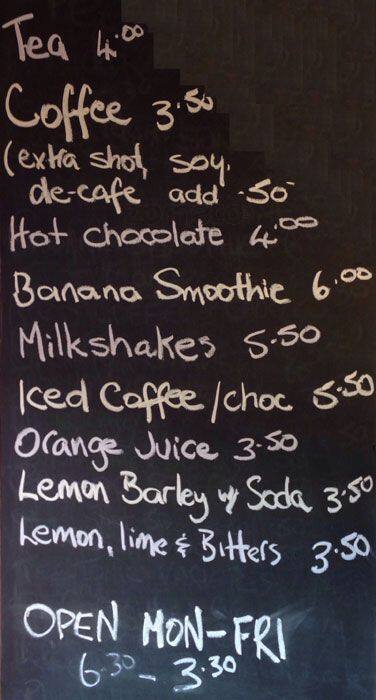 Tea 4.00
Coffee 3.50
(extra shot, soy,
de-cafe add .50
Hot chocolate 4.00
Banana Smoothie 6.00
Milkshakes 5.50
Iced Coffee/choc 5.50
Orange Juice 3.50
Lemon Barley w/ Soda 3.50
Lemon, lime & Bitters 3.50
OPEN MON-FRI
6.30 - 3.30